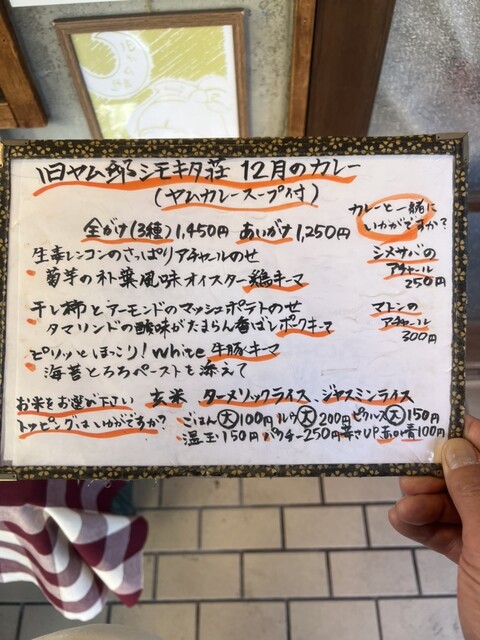 旧ヤム邸シモキタ荘 12月のカレー
(ヤムカレースープ付)
全がけ(3種)1,450円 あいがけ1,250円
生姜レンコンのさっぱりアチャールのせ
菊芋の朴葉風味オイスター鶏キーマ
干し柿とアーモンドのマッシュポテトのせ
タマリンドの酸味がたまらん香ばしポークキーマ
ピリッとほっこり!White 牛豚キーマ
海苔とろろペーストを添えて
カレーと一緒に
いかがですか?
シメサバの
アチャール
250円
マトンの
アチャール
300円
お米をお選び下さい 玄米 ターメリックライス、ジャスミンライス
トッピングはいかがですか? ごはん大100円 ルウ大200円 ピクルス大150円
温玉150円 パクチー250円 辛さUP赤or青100円